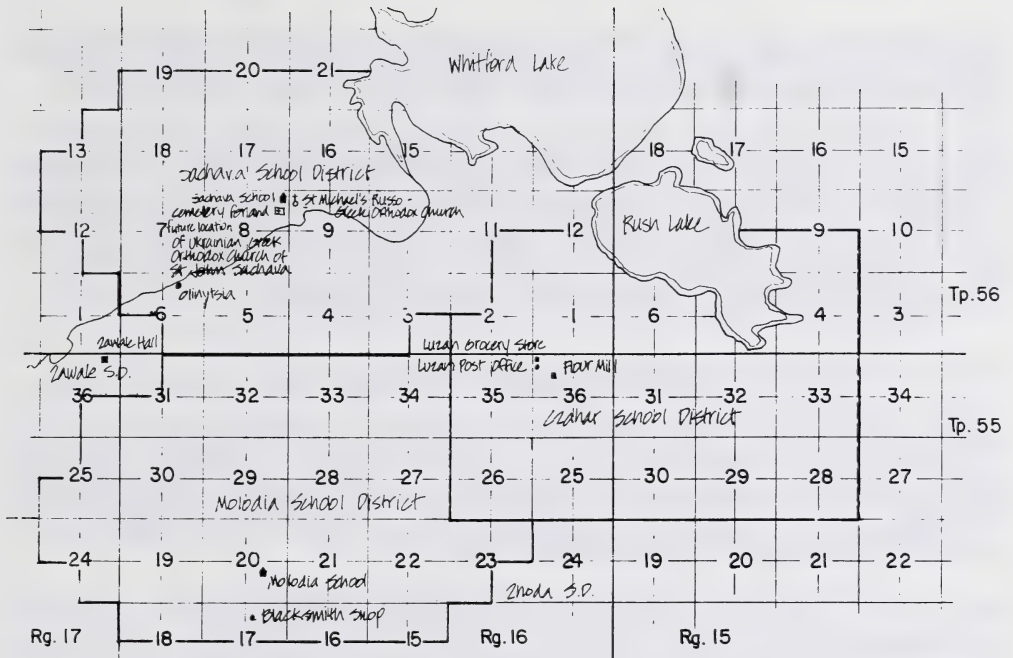 Whitford Lake
19 20 21
13 18 17 16 15 18 17 16 15
Sachava School District
Sachava School
St Michael's Russo-
Greek Orthodox Church
cemetery for land
12 7 8 9 11 12 Rush Lake 9 10
future location
of Ukrainian Greek
Orthodox Church of
St John Sachava
olinytsia
Tp. 56
1 6 5 4 3 2 1 6 4 3
Zawale Hall
Zawale S.D.
Luzan Grocery Store
Luzan Post office
Flour Mill
36 31 32 33 34 35 36 31 32 33 34
Czahar School District
Tp. 55
25 30 29 28 27 26 25 30 29 28 27
Molodia School District
24 19 20 21 22 23 24 19 20 21 22
Molodia School
Zhoda S.D.
Blacksmith Shop
Rg. 17 18 17 16 15 Rg. 16 Rg. 15